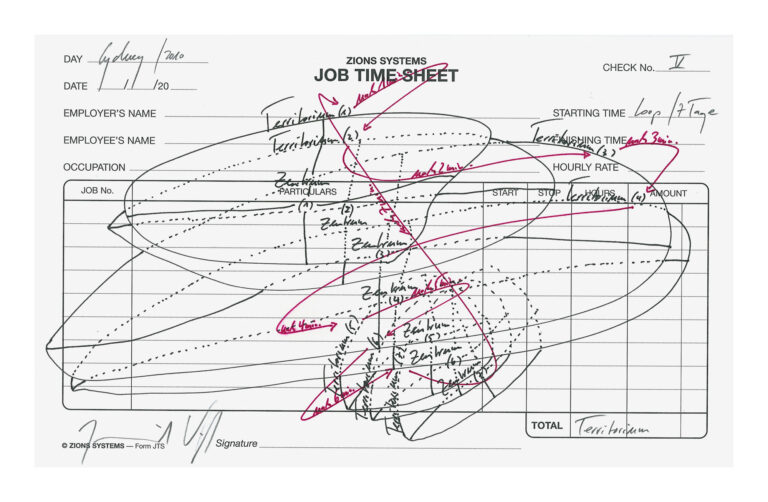 DAY Sydney / 2010
ZIONS SYSTEMS
JOB TIME SHEET
CHECK No. IV
DATE / 11 /20
EMPLOYER'S NAME
Territorium (1)
STARTING TIME loop / 7 Tage
EMPLOYEE'S NAME
Territorium (2)
Territorium (3)
FINISHING TIME
nach 3 min.
nach 1 min.
nach 2 min.
OCCUPATION
HOURLY RATE
Zentrum
JOB No.
PARTICULARS
START
STOP
HOURS
AMOUNT
Territorium (4)
(1)
(2)
Zentrum
Zentrum
(3)
Zentrum
(4)
nach 4 min.
Zentrum
(5)
Zentrum
(6)
Zentrum
(7)
Territorium (5)
Territorium (6)
Territorium (7)
nach 6 min.
TOTAL Territorium
© ZIONS SYSTEMS — Form JTS
Signature